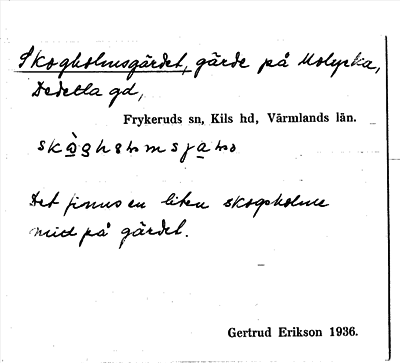 Skogholmsgärdet, gärde på Molycka,
gd,
Frykeruds sn, Kils hd, Värmlands län.
Det finns en liten skogsholme
mitt på gärdet.
Gertrud Erikson 1936.